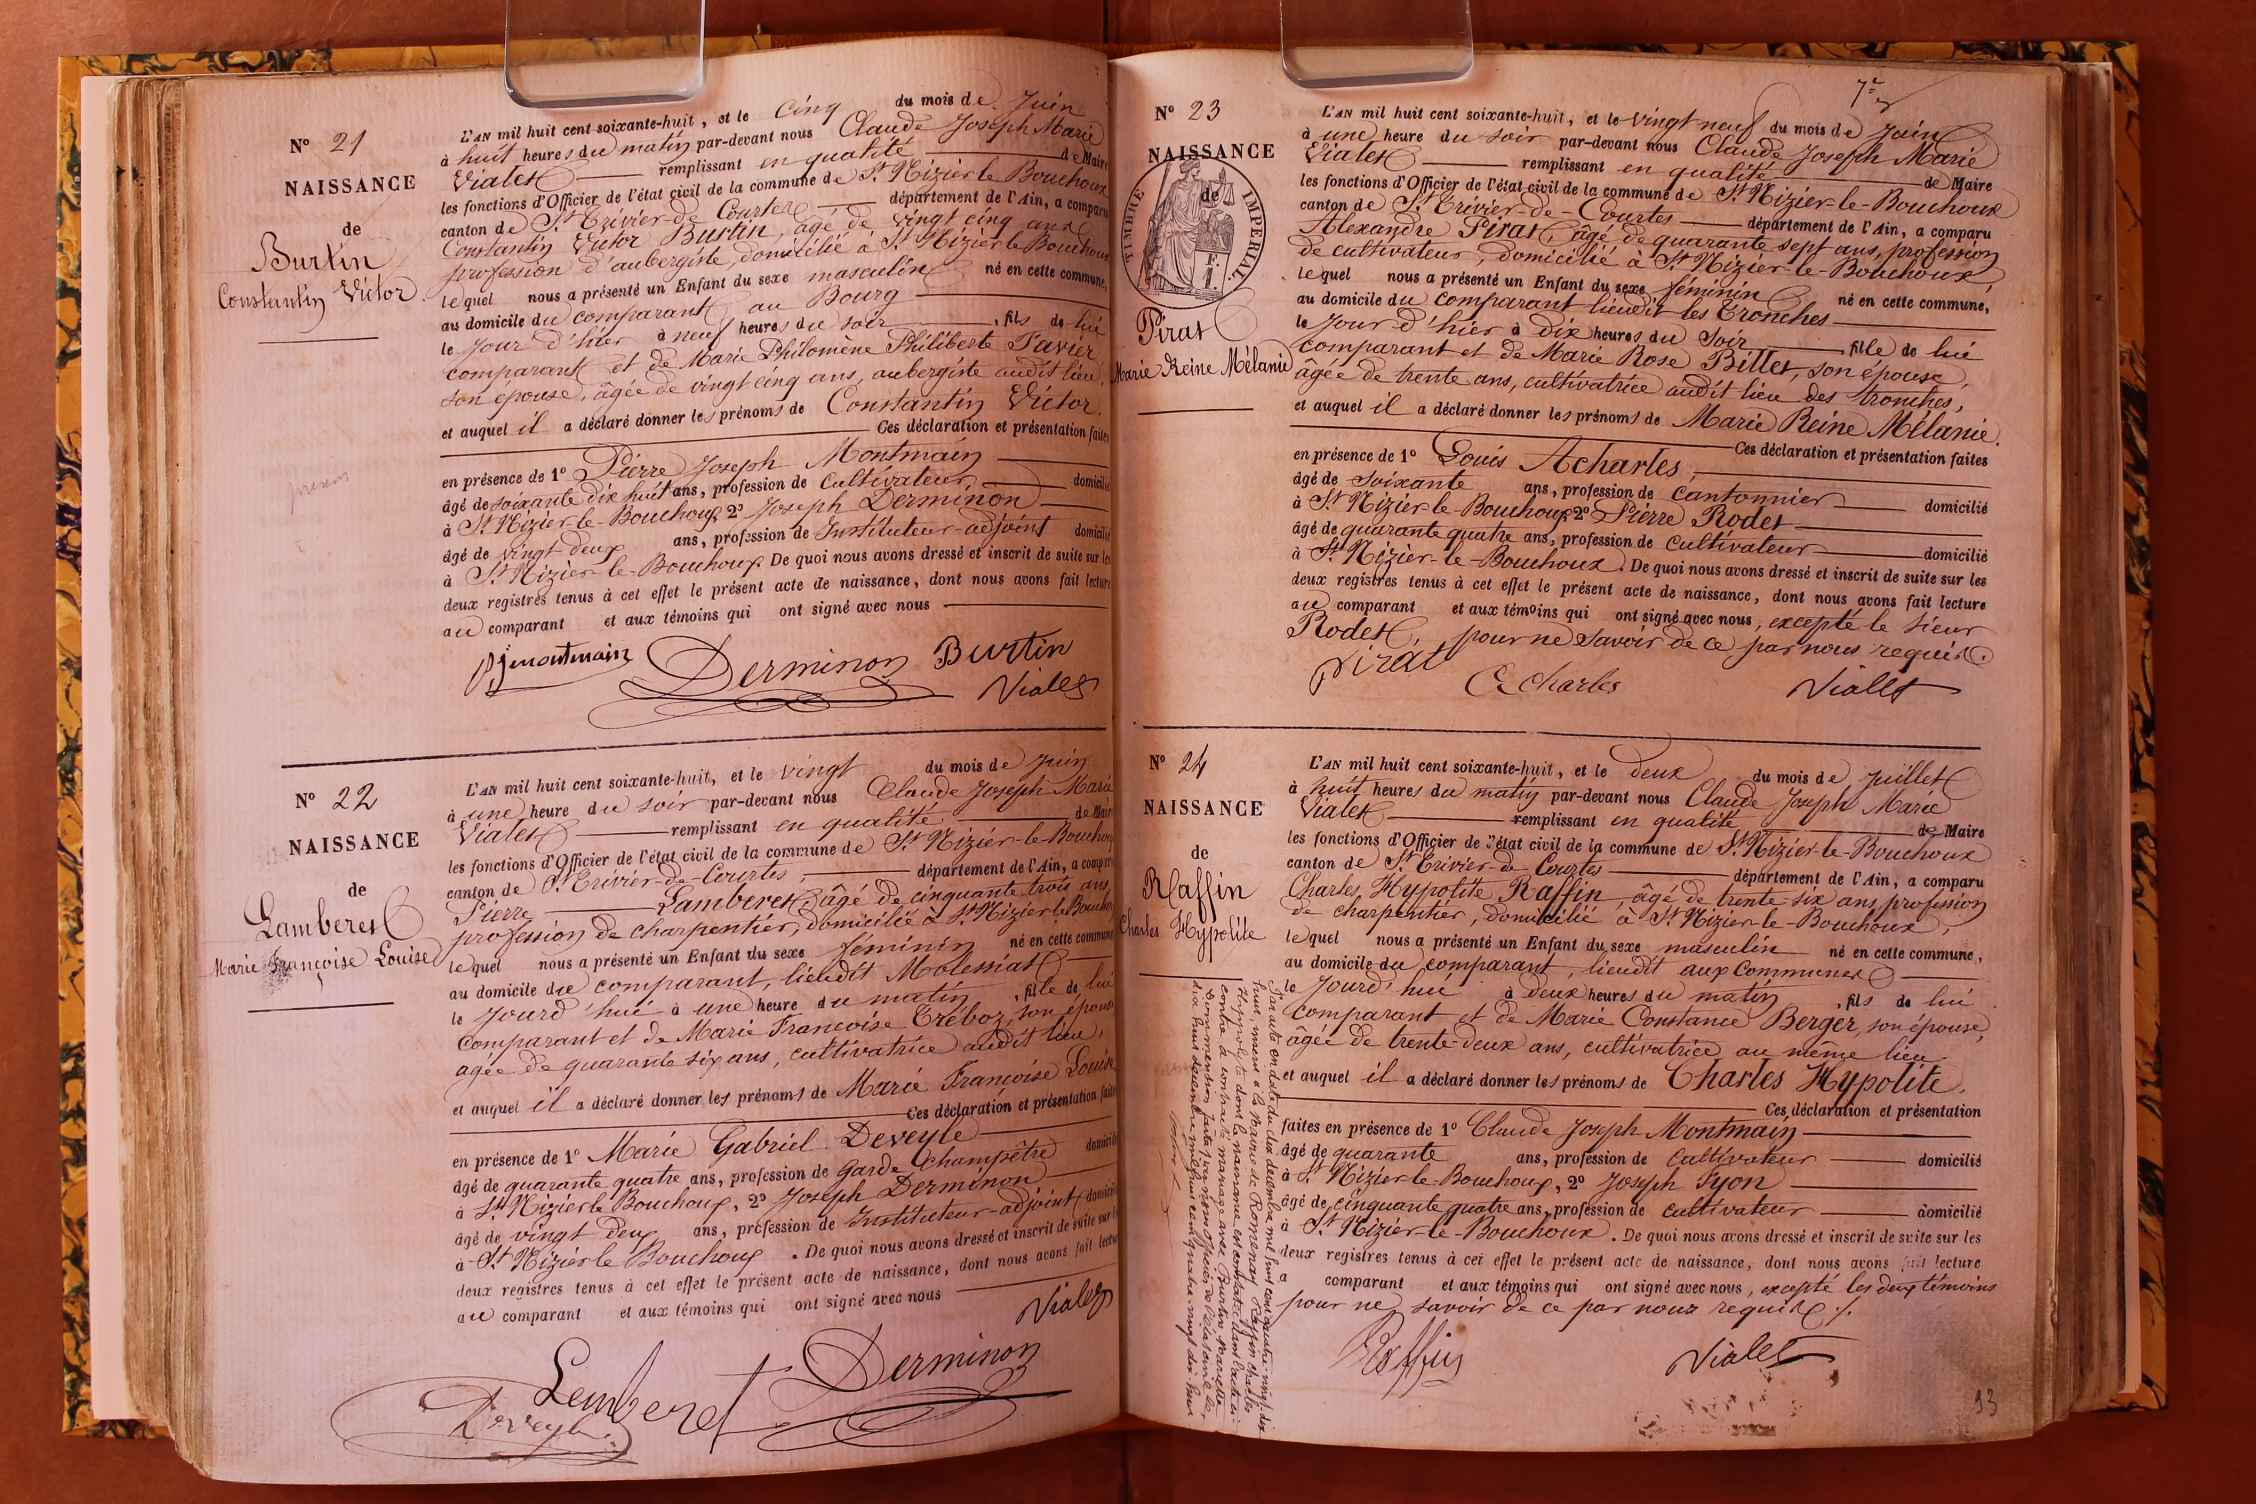 N° 21
NAISSANCE
de
Burtin
Constantin Victor
L'AN mil huit cent soixante-huit, et le cinq du mois de Juin
à huit heures du matin par-devant nous Claude Joseph Marie
Vialet remplissant en qualité de Maire
les fonctions d'Officier de l'état civil de la commune de St Nizier le Bouchoux
canton de St Trivier-de Courtes département de l'Ain, a comparu
Constantin Victor Burtin, âgé de vingt cinq ans
profession d'aubergiste, domicilié à St Nizier le Bouchoux
lequel nous a présenté un Enfant du sexe masculin né en cette commune,
au domicile du comparant au Bourg
le jour d'hier à neuf heures du soir, fils de lui
comparant et de Marie Philomène Philiberte Pavier
son épouse, âgée de vingt cinq ans, aubergiste audit lieu,
et auquel il a déclaré donner les prénoms de Constantin Victor.
Ces déclaration et présentation faites
en présence de 1° Pierre Joseph Montmain
âgé de soixante dix huit ans, profession de cultivateur domicilié
à St Nizier-le-Bouchoux, 2° Joseph Derminon
âgé de vingt deux ans, profession de Instituteur-adjoint domicilié
à St Nizier-le-Bouchoux. De quoi nous avons dressé et inscrit de suite sur les
deux registres tenus à cet effet le présent acte de naissance, dont nous avons fait lecture
au comparant et aux témoins qui ont signé avec nous
Pjmontmain Derminon Burtin
Vialet
N° 22
NAISSANCE
de
Lamberet
Marie Françoise Louise
L'AN mil huit cent soixante-huit, et le vingt du mois de Juin
à une heure du soir par-devant nous Claude Joseph Marie
Vialet remplissant en qualité de Maire
les fonctions d'Officier de l'état civil de la commune de St Nizier-le-Bouchoux
canton de St Trivier-de-Courtes, département de l'Ain, a comparu
Pierre Lamberet, âgé de cinquante trois ans,
profession de charpentier, domicilié à St Nizier le Bouchoux
lequel nous a présenté un Enfant du sexe féminin né en cette commune
au domicile du comparant, lieudit Molessiat
le jourd'hui à une heure du matin, fille de lui
comparant et de Marie Françoise Tréboz, son épouse
agée de quarante six ans, cultivatrice audit lieu,
et auquel il a déclaré donner les prénoms de Marie Françoise Louise
Ces déclaration et présentation faites
en présence de 1° Marie Gabriel Deveyle
âgé de quarante quatre ans, profession de garde champêtre domicilié
à St Nizier le Bouchoux, 2° Joseph Derminon
âgé de vingt deux ans, profession de Instituteur-adjoint domicilié
à St Nizier le Bouchoux. De quoi nous avons dressé et inscrit de suite sur les
deux registres tenus à cet effet le présent acte de naissance, dont nous avons fait lecture
au comparant et aux témoins qui ont signé avec nous
Vialet
Lemberet Derminon
Deveyle
7e
N° 23
NAISSANCE
de
TIMBRE IMPERIAL
Pirat
Marie Reine Mélanie
L'AN mil huit cent soixante-huit, et le vingt neuf du mois de Juin
à une heure du soir par-devant nous Claude Joseph Marie
Vialet remplissant en qualité de Maire
les fonctions d'Officier de l'état civil de la commune de St Nizier-le-Bouchoux
canton de St Trivier-de-Courtes département de l'Ain, a comparu
Alexandre Pirat, âgé de quarante sept ans, profession
de cultivateur, domicilié à St Nizier-le-Bouchoux,
lequel nous a présenté un Enfant du sexe féminin né en cette commune,
au domicile du comparant lieudit les Tronches
le jour d'hier à dix heures du soir fille de lui
comparant et de Marie Rose Billet, son épouse,
âgée de trente ans, cultivatrice audit lieu des tronches,
et auquel il a déclaré donner les prénoms de Marie Reine Mélanie.
Ces déclaration et présentation faites
en présence de 1° Louis Acharles
âgé de soixante ans, profession de cantonnier domicilié
à St Nizier-le-Bouchoux 2° Pierre Rodet
âgé de quarante quatre ans, profession de cultivateur domicilié
à St Nizier-le-Bouchoux. De quoi nous avons dressé et inscrit de suite sur les
deux registres tenus à cet effet le présent acte de naissance, dont nous avons fait lecture
au comparant et aux témoins qui ont signé avec nous, excepté le sieur
Rodet, pour ne savoir de ce par nous requis.
Pirat Acharles Vialet
N° 24
NAISSANCE
de
Raffin
Charles Hypolite
L'AN mil huit cent soixante-huit, et le deux du mois de Juillet
à huit heures du matin par-devant nous Claude Joseph Marie
Vialet remplissant en qualité de Maire
les fonctions d'Officier de l'état civil de la commune de St Nizier-le-Bouchoux
canton de St Trivier-de-Courtes département de l'Ain, a comparu
Charles Hypolite Raffin, âgé de trente-six ans, profession
de charpentier, domicilié à St Nizier-le-Bouchoux,
lequel nous a présenté un Enfant du sexe masculin né en cette commune,
au domicile du comparant, lieudit aux Communes
le jourd'hui à deux heures du matin, fils de lui
comparant et de Marie Constance Berger, son épouse,
âgée de trente-deux ans, cultivatrice au même lieu
et auquel il a déclaré donner les prénoms de Charles Hypolite.
Ces déclaration et présentation
faites en présence de 1° Claude Joseph Montmain
âgé de quarante ans, profession de cultivateur domicilié
à St Nizier-le-Bouchoux, 2° Joseph Pyon
âgé de cinquante quatre ans, profession de cultivateur domicilié
à St Nizier-le-Bouchoux. De quoi nous avons dressé et inscrit de suite sur les
deux registres tenus à cet effet le présent acte de naissance, dont nous avons fait lecture
a comparant et aux témoins qui ont signé avec nous, excepté les deux témoins
pour ne savoir de ce par nous requis ./.
Raffin Vialet
Par acte en date du deux décembre mil huit cent quatre-vingt-dix
huit, inscrit à la Mairie de Romenay Raffin Charles
Hippolyte dont la naissance est constatée dans l'acte ci-
contre a contracté mariage avec Burtin Mariette
Dont mention faite par nous officier de l'état civil le
dix huit décembre mil huit cent quatre-vingt dix huit
13